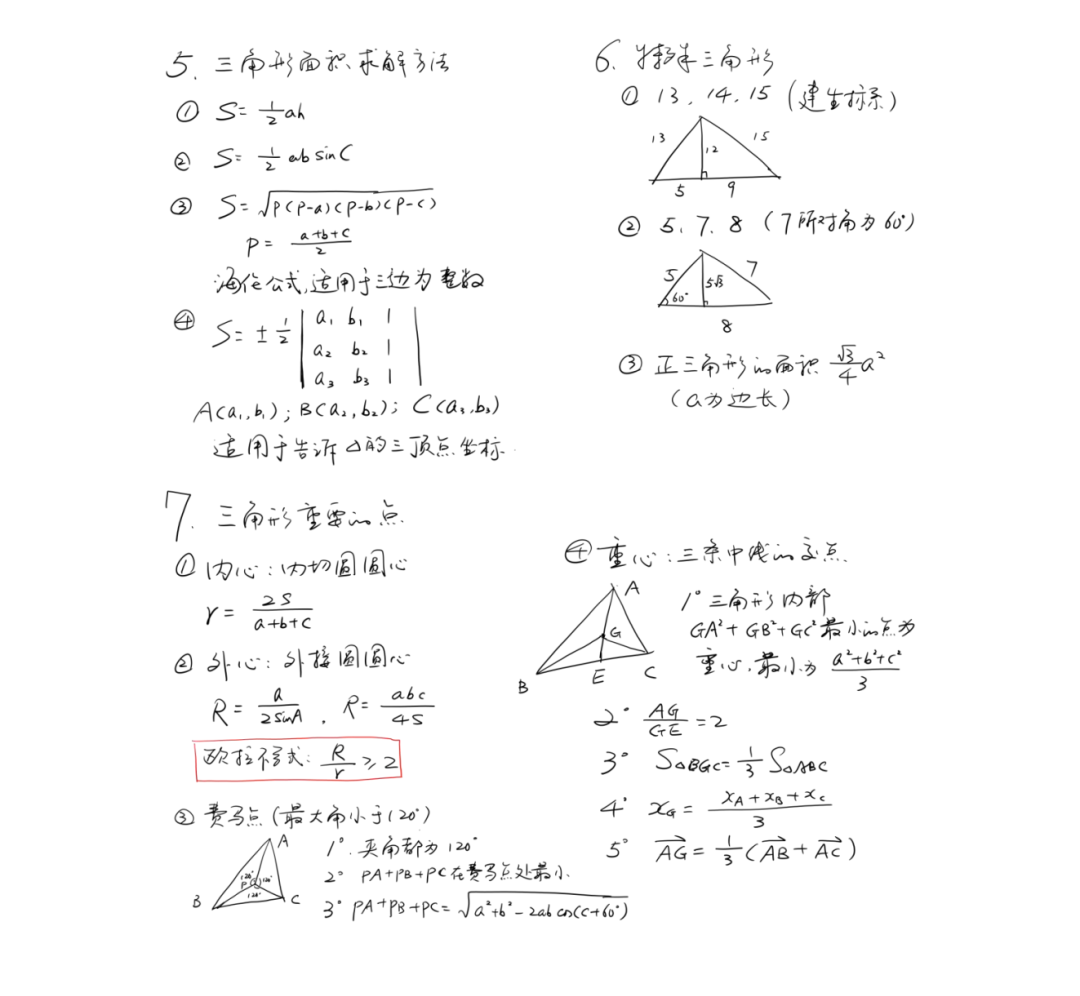 5. 三角形面积求解方法
① S=½ah
② S=½ab sinC
③ S=√(P(P-a)(P-b)(P-c))
P=(a+b+c)/2
海伦公式,适用于三边为整数
④ S=±½|a₁ b₁ 1|
|a₂ b₂ 1|
|a₃ b₃ 1|
A(a₁,b₁); B(a₂,b₂); C(a₃,b₃)
适用于告诉△的三顶点坐标.
6. 特殊三角形
① 13, 14, 15 (建坐标系)
13 12 15
5 9
② 5、7、8 (7所对角为60°)
5 5√3 7
60°
8
③ 正三角形的面积 (√3/4)a²
(a为边长)
7. 三角形重要的点
① 内心: 内切圆圆心
r=2S/(a+b+c)
② 外心: 外接圆圆心
R=a/(2sinA), R=abc/(4S)
欧拉不等式: R/r ≥ 2
③ 费马点(最大角小于120°)
A
B C P
120° 120° 120°
1°. 夹角都为120°
2° PA+PB+PC在费马点处最小.
3° PA+PB+PC=√(a²+b²-2ab cos(C+60°))
④ 重心: 三条中线的交点
A
G
B E C
1° 三角形内部
GA²+GB²+GC²最小的点为
重心,最小为 (a²+b²+c²)/3
2° AG/GE=2
3° S△BGC=⅓S△ABC
4° x_G=(x_A+x_B+x_C)/3
5° AG→=⅓(AB→+AC→)